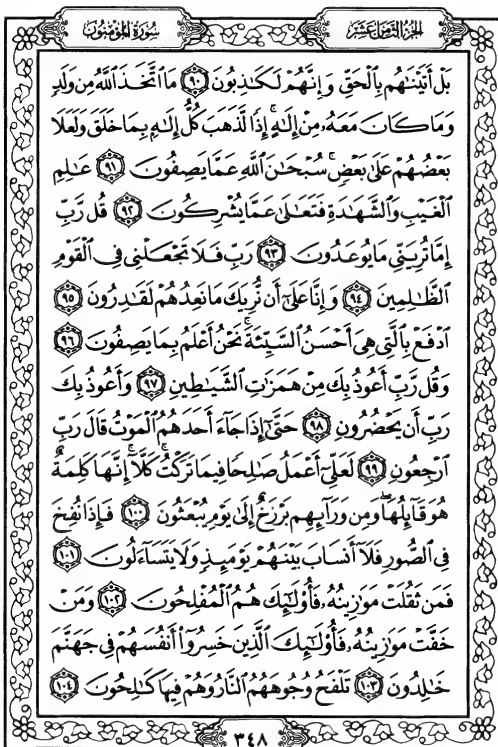 الجزء الثامن عشر
سورة المؤمنون
بَلْ أَتَيْنَٰهُم بِٱلْحَقِّ وَإِنَّهُمْ لَكَٰذِبُونَ ۝٩٠ مَا ٱتَّخَذَ ٱللَّهُ مِن وَلَدٍ
وَمَا كَانَ مَعَهُۥ مِنْ إِلَٰهٍ ۚ إِذًا لَّذَهَبَ كُلُّ إِلَٰهٍۭ بِمَا خَلَقَ وَلَعَلَا
بَعْضُهُمْ عَلَىٰ بَعْضٍ ۚ سُبْحَٰنَ ٱللَّهِ عَمَّا يَصِفُونَ ۝٩١ عَٰلِمِ
ٱلْغَيْبِ وَٱلشَّهَٰدَةِ فَتَعَٰلَىٰ عَمَّا يُشْرِكُونَ ۝٩٢ قُل رَّبِّ
إِمَّا تُرِيَنِّى مَا يُوعَدُونَ ۝٩٣ رَبِّ فَلَا تَجْعَلْنِى فِى ٱلْقَوْمِ
ٱلظَّٰلِمِينَ ۝٩٤ وَإِنَّا عَلَىٰٓ أَن نُّرِيَكَ مَا نَعِدُهُمْ لَقَٰدِرُونَ ۝٩٥
ٱدْفَعْ بِٱلَّتِى هِىَ أَحْسَنُ ٱلسَّيِّئَةَ ۚ نَحْنُ أَعْلَمُ بِمَا يَصِفُونَ ۝٩٦
وَقُل رَّبِّ أَعُوذُ بِكَ مِنْ هَمَزَٰتِ ٱلشَّيَٰطِينِ ۝٩٧ وَأَعُوذُ بِكَ
رَبِّ أَن يَحْضُرُونِ ۝٩٨ حَتَّىٰٓ إِذَا جَآءَ أَحَدَهُمُ ٱلْمَوْتُ قَالَ رَبِّ
ٱرْجِعُونِ ۝٩٩ لَعَلِّىٓ أَعْمَلُ صَٰلِحًا فِيمَا تَرَكْتُ ۚ كَلَّآ ۚ إِنَّهَا كَلِمَةٌ
هُوَ قَآئِلُهَا ۖ وَمِن وَرَآئِهِم بَرْزَخٌ إِلَىٰ يَوْمِ يُبْعَثُونَ ۝١٠٠ فَإِذَا نُفِخَ
فِى ٱلصُّورِ فَلَآ أَنسَابَ بَيْنَهُمْ يَوْمَئِذٍ وَلَا يَتَسَآءَلُونَ ۝١٠١
فَمَن ثَقُلَتْ مَوَٰزِينُهُۥ فَأُو۟لَٰٓئِكَ هُمُ ٱلْمُفْلِحُونَ ۝١٠٢ وَمَنْ
خَفَّتْ مَوَٰزِينُهُۥ فَأُو۟لَٰٓئِكَ ٱلَّذِينَ خَسِرُوٓا۟ أَنفُسَهُمْ فِى جَهَنَّمَ
خَٰلِدُونَ ۝١٠٣ تَلْفَحُ وُجُوهَهُمُ ٱلنَّارُ وَهُمْ فِيهَا كَٰلِحُونَ ۝١٠٤
٣٤٨